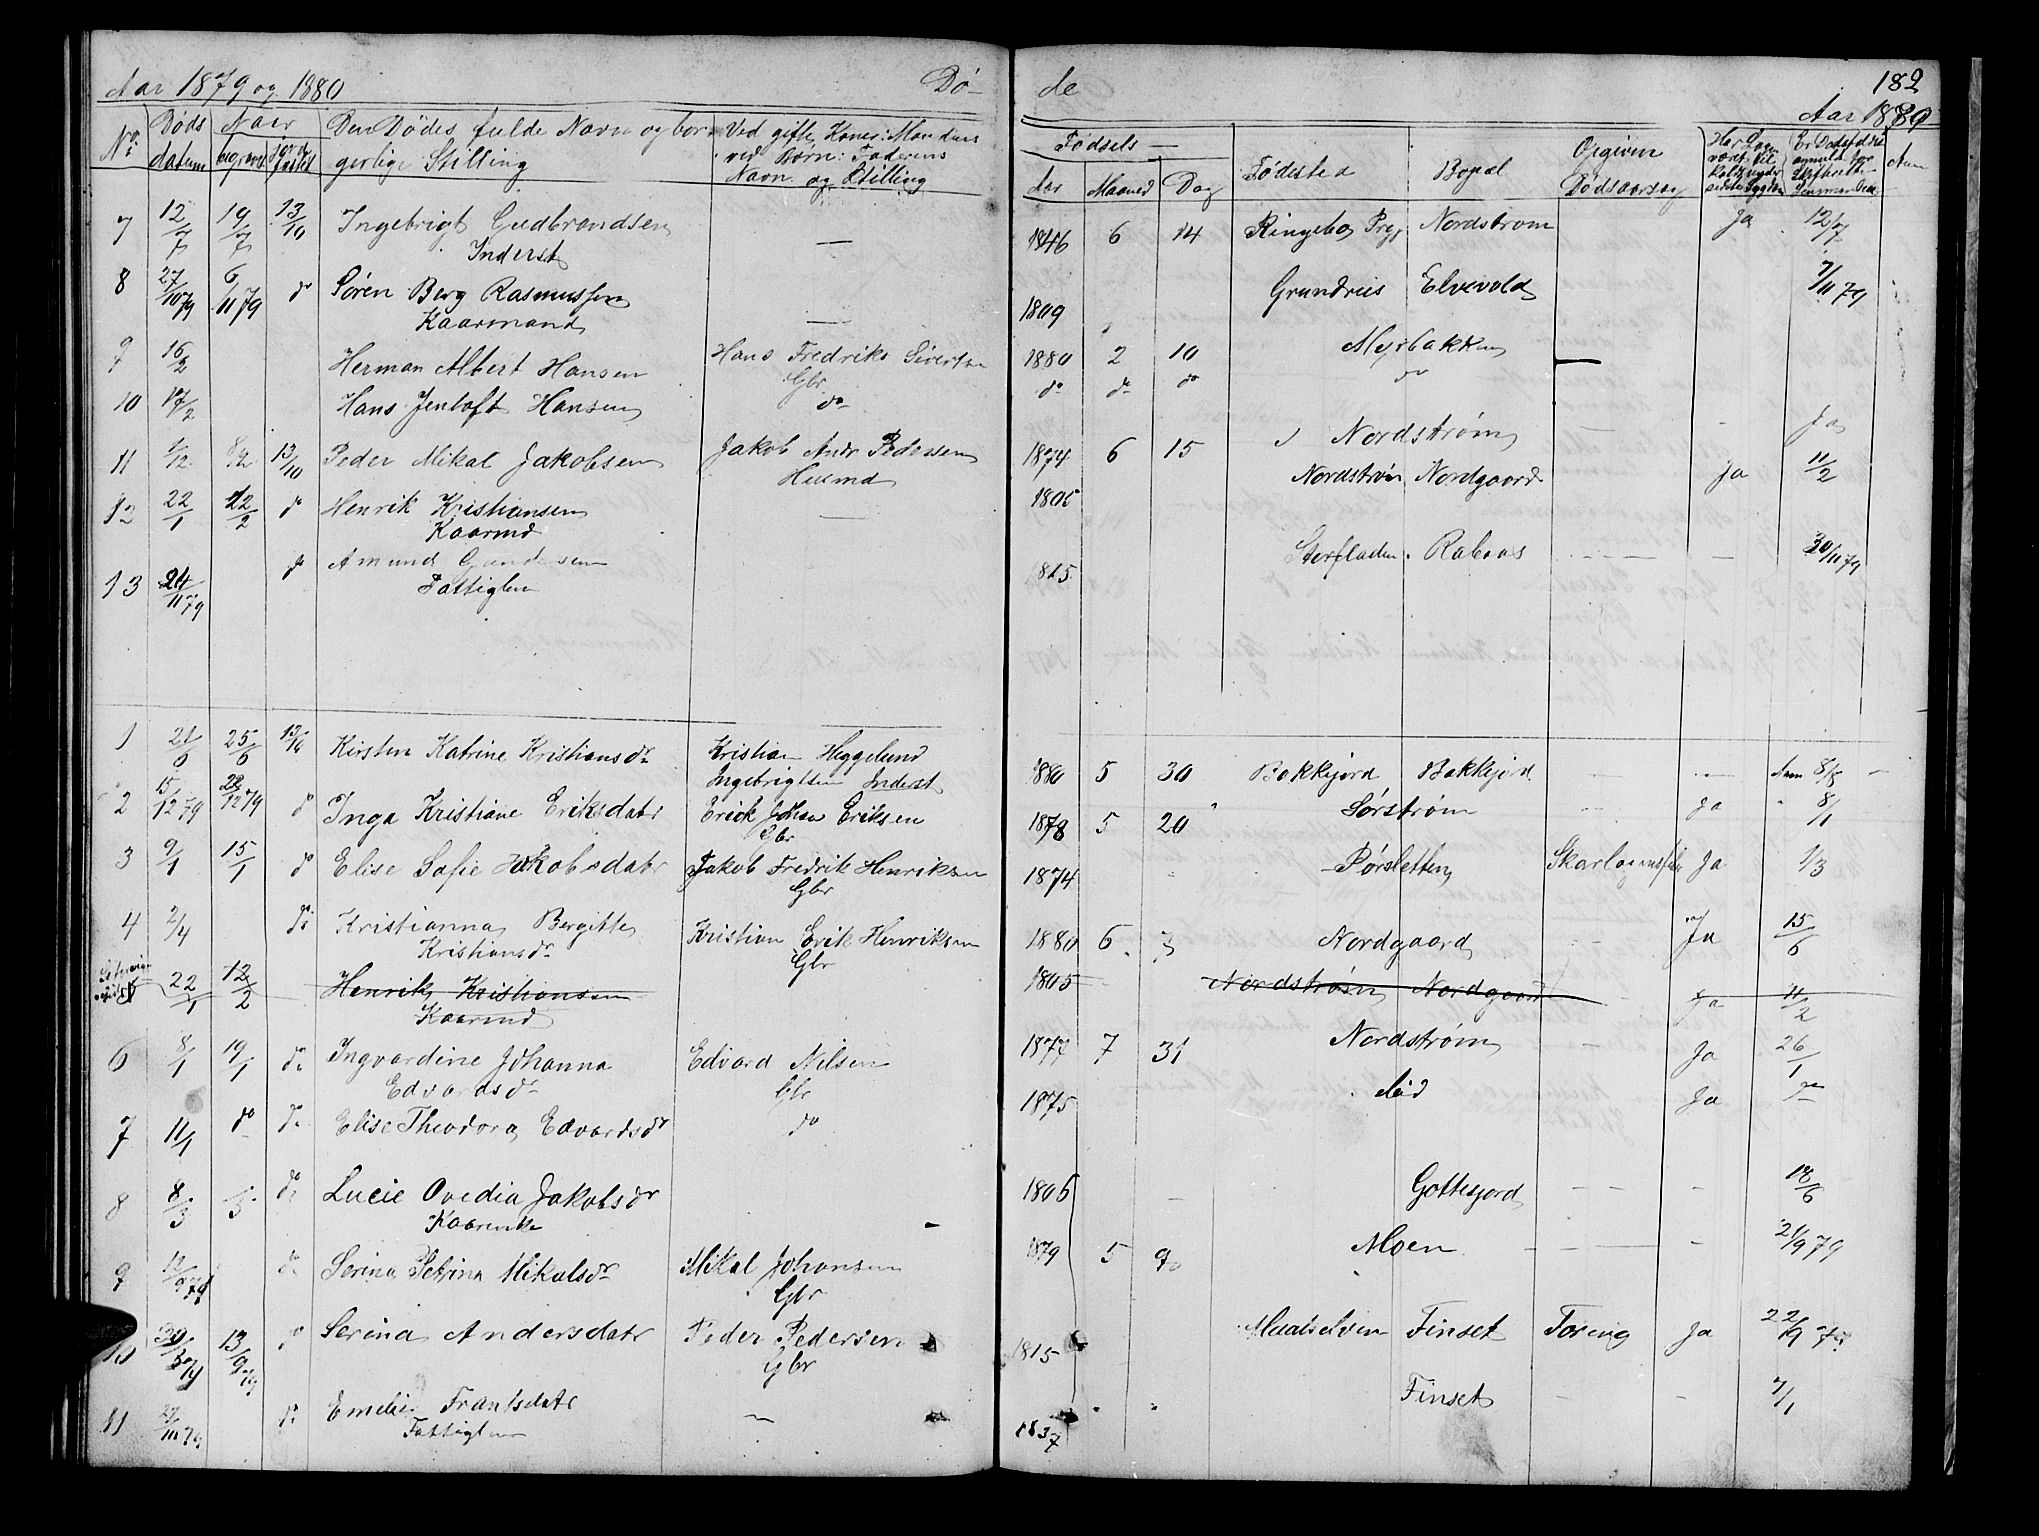 Aar 1879 og 1880 Dø-
de 182
Aar 1880
No Døds datum Naar begravet jordfæstet Den Dødes fulde Navn og borgerlige Stilling Ved gifte Koner: Mandens ved Børn: Faderens Navn og Stilling
Fødsels Aar Maaned Dag Fødested Bopæl Opgiven Dødsaarsag
7 12/7 19/7 13/10 Ingebrigt Gudbrandsen — 1846 6 14 Ringebo Prgj Nordstrøm Ja 12/7
Inderst
8 27/10 79 6/11 79 do Søren Berg Rasmussen — 1809 Elvevold 7/11 79
Kaarmand
9 16/2 Herman Albert Hansen Hans Fredrik Sivertsen 1880 2 10 Myrbakken —
Gbr
10 17/2 Hans Jentoft Hansen do do do do do
11 1/12 8/2 13/10 Peder Mikal Jakobsen Jakob Andr Pedersen 1874 6 15 Nordstrøm - Ja
Husmd
12 22/1 22/2 do Henrik Kristiansen — 1805 Nordstrøm Nordgaard Ja 11/2
Kaarmd
13 24/11 79 do Amund Gundersen 1815 Rabaas — 30/11 79
Fattiglem
1 21/6 25/6 13/10 Kirsten Katrine Kristiansdr Kristian Heggelund 1880 5 30 Bakkejord Bakkejord — Anm 8/8
Ingebrigtsen Inderst
2 15/12 79 22/12 79 do Inga Kristiane Eriksdatr Erick Johan Eriksen 1878 5 20 Sørstrøm Ja 8/1
Gbr
3 9/1 15/1 do Elise Sofie Jakobsdatr Jakob Fredrik Henriksen 1874 Pørsletten Ja 1/3
Gbr
4 2/4 do Kristianna Bergitte Kristian Erik Henriksen 1880 6 7 Nordgaard Ja 15/6
Kristiansdr Gbr
22/1 12/2 Henrik Kristiansen 1805 Nordstrøm Nordgaard Ja 11/2
Kaarmd
6 8/1 19/1 do Ingvardine Johanna Edvard Nilsen 1877 7 31 Nordstrøm Ja 26/1
Edvardsdr Gbr
7 11/1 do do Elise Theodora Edvardsdr do 1875 Ja do
8 8/3 do Lucie Ovedia Jakobsdr 1806 Gottesjord — 18/6
Kaarenke
9 12/9 79 do Serina Petrina Mikalsdr Mikal Johansen 1879 5 9 Moen — 21/9 79
Gbr
10 30/8 79 13/9 79 do Serina Andersdatr Peder Pedersen 1815 Maalselven Finset Ja 22/9 79
Gbr
11 27/11 79 do Emelie Frantsdatr — 1837 Finset - 7/1
Fattiglem